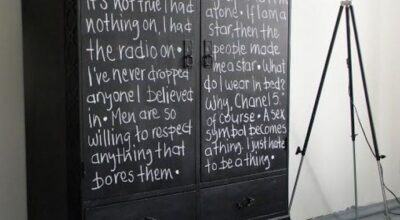 It's not true I had
nothing on, I had
the radio on •
I've never dropped
anyone I believed
in • Men are so
willing to respect
anything that
bores them •
alone • If I am a
star, then the
people made
me a star • What
do I wear in bed?
Why, Chanel 5
of course • A sex
symbol becomes
a thing. I just hate
to be a thing •